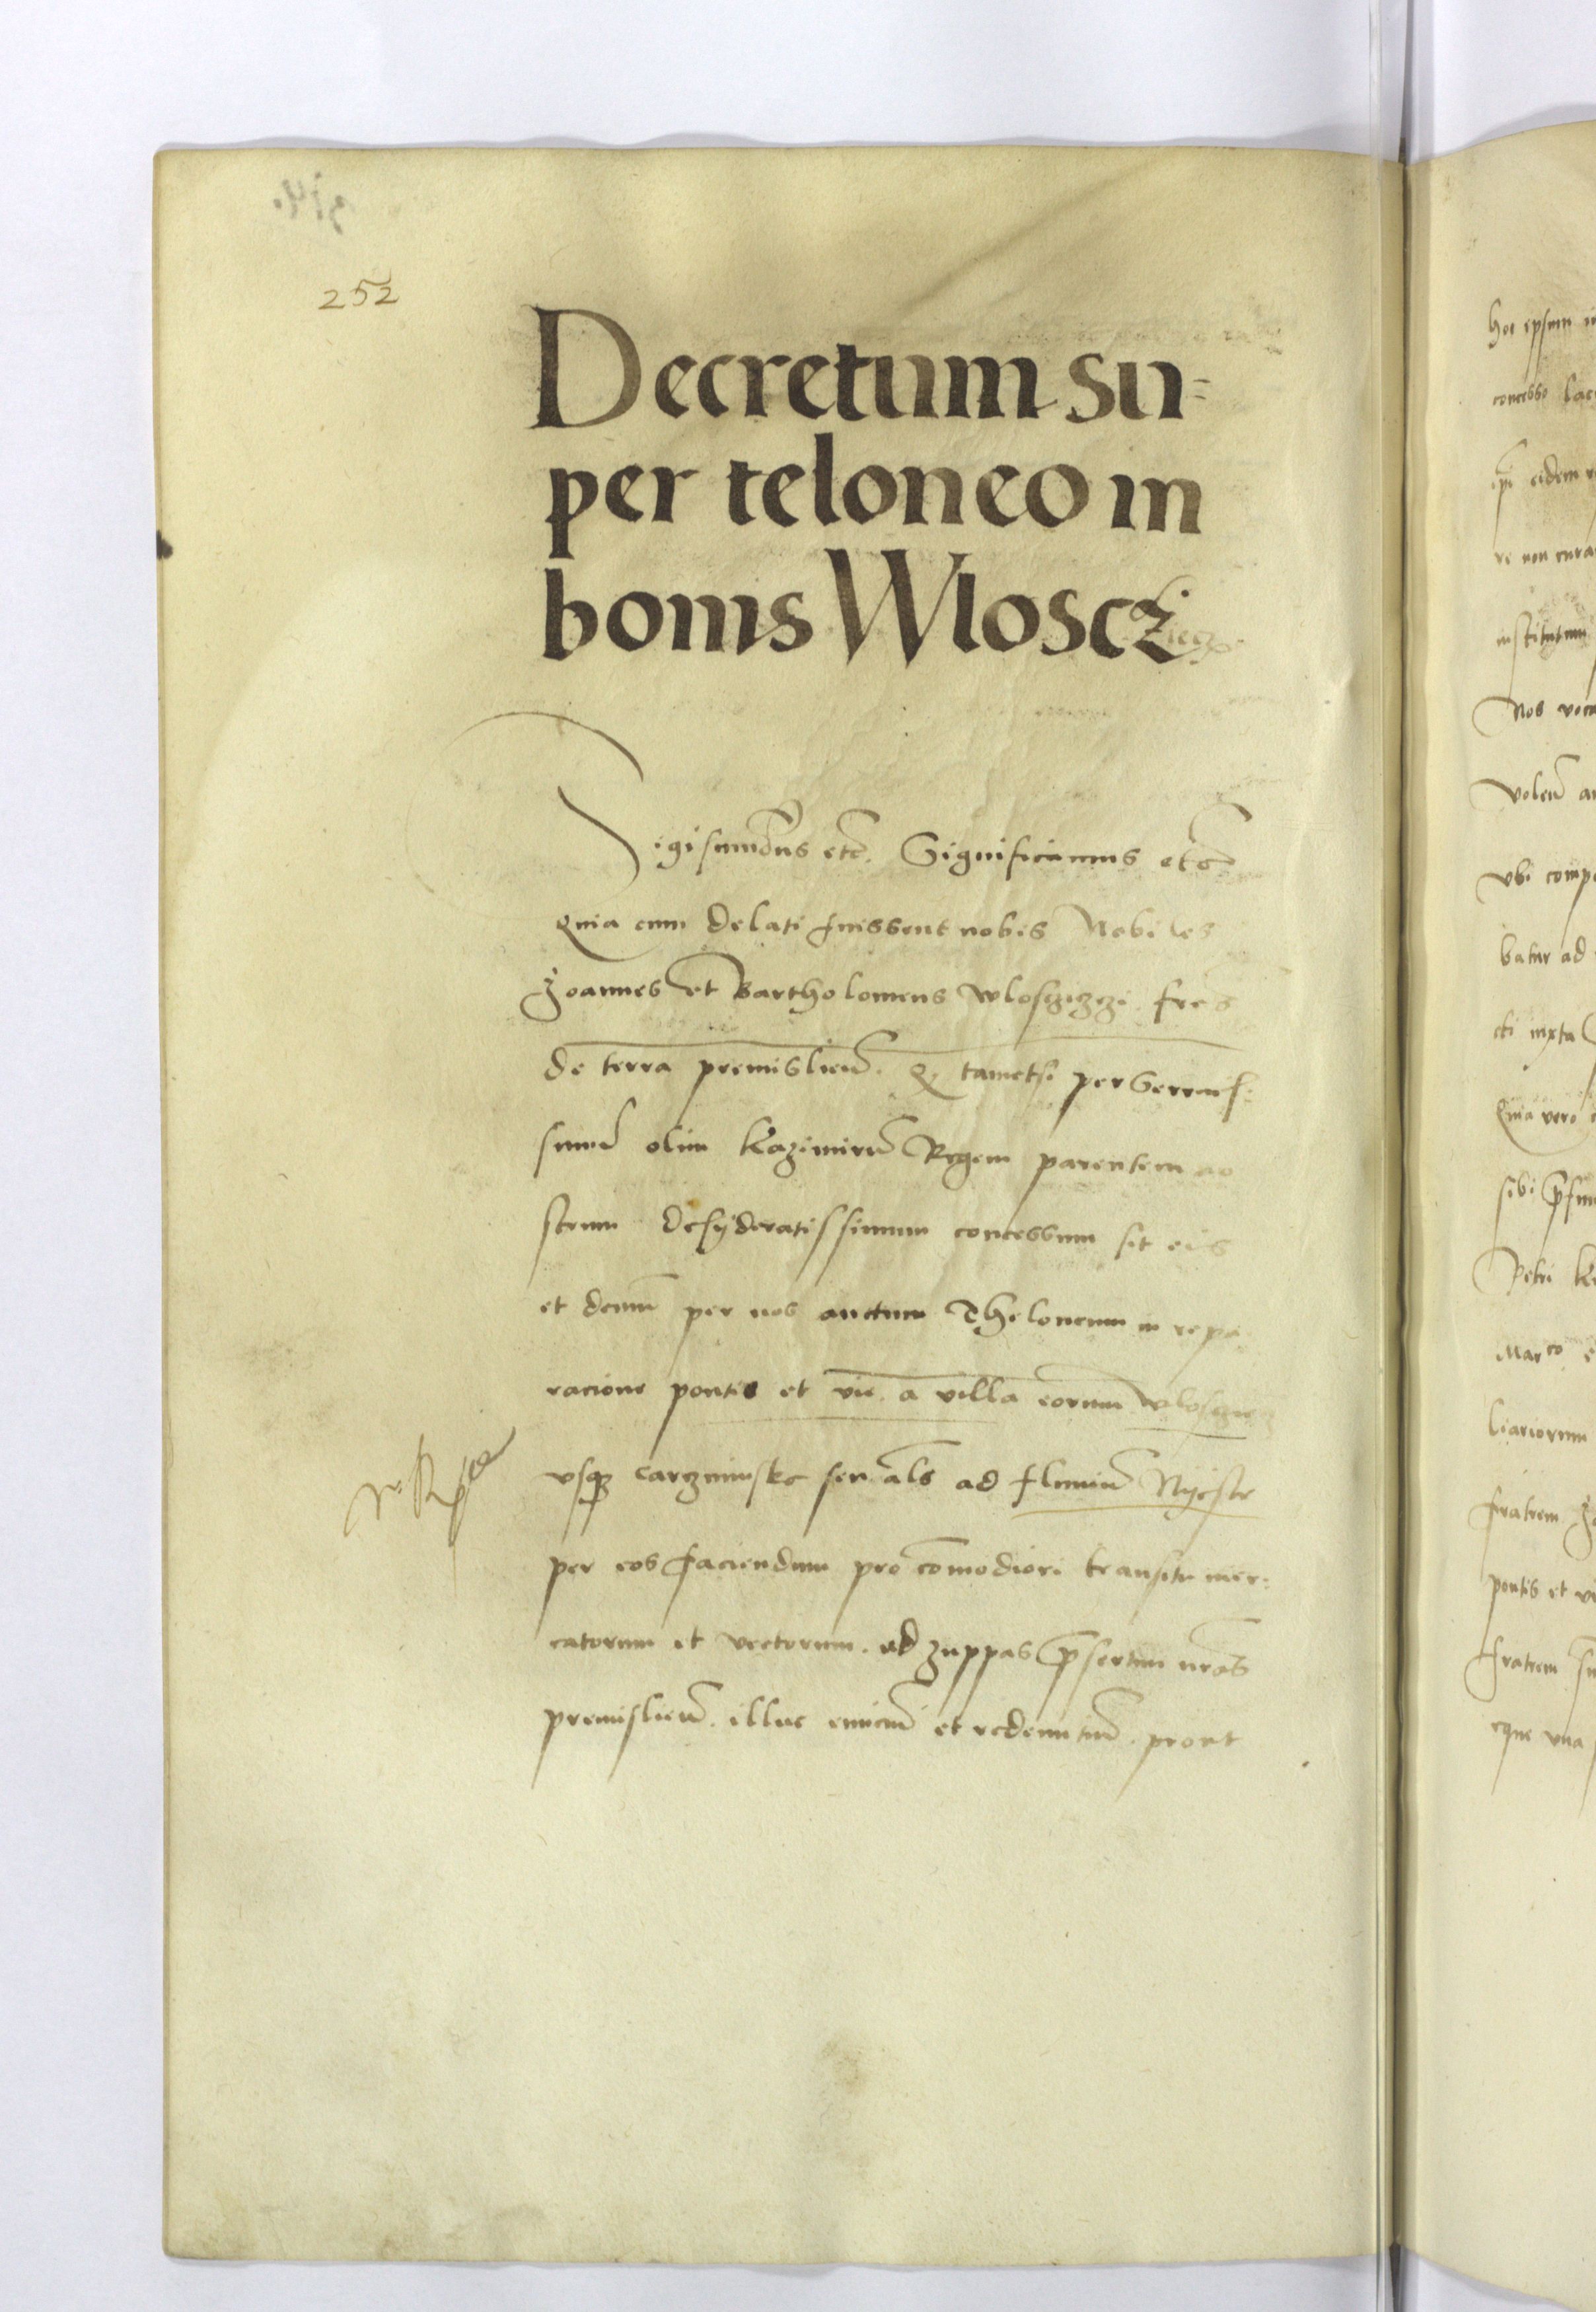 252
Decretum su=
per teloneo in
bonis Wloscż
Sigismundus etc. Significamus etc
Quia cum delati fuissent nobis Nobiles
Joannes et Bartholomeus Wlosczizzi fres
de terra premislien. Q tametsi per Serenis:
simu olim Kazimiru Regem parentem no
strum desyderatissimum concessum sit eis
et demu per nos auctum Theloneum in repa
racione pontis et vie a villa eorum
usq carzminske seu als ad fluviu Nyestr
per eos faciendum pro comodiori transitu mer:
catorum et vectorum ad zuppas psertim nras
premislien. illuc eunciu et redeuntiu prout
hoc ipsum
concesso
ipi eidem
re non cura
institutum
Nos voca
volen
ubi comp
batur ad
cti iuxta
Quia vero
sibi
Petri
Marco
liariorum
fratrem
pontis et vi
fratrem
eque una